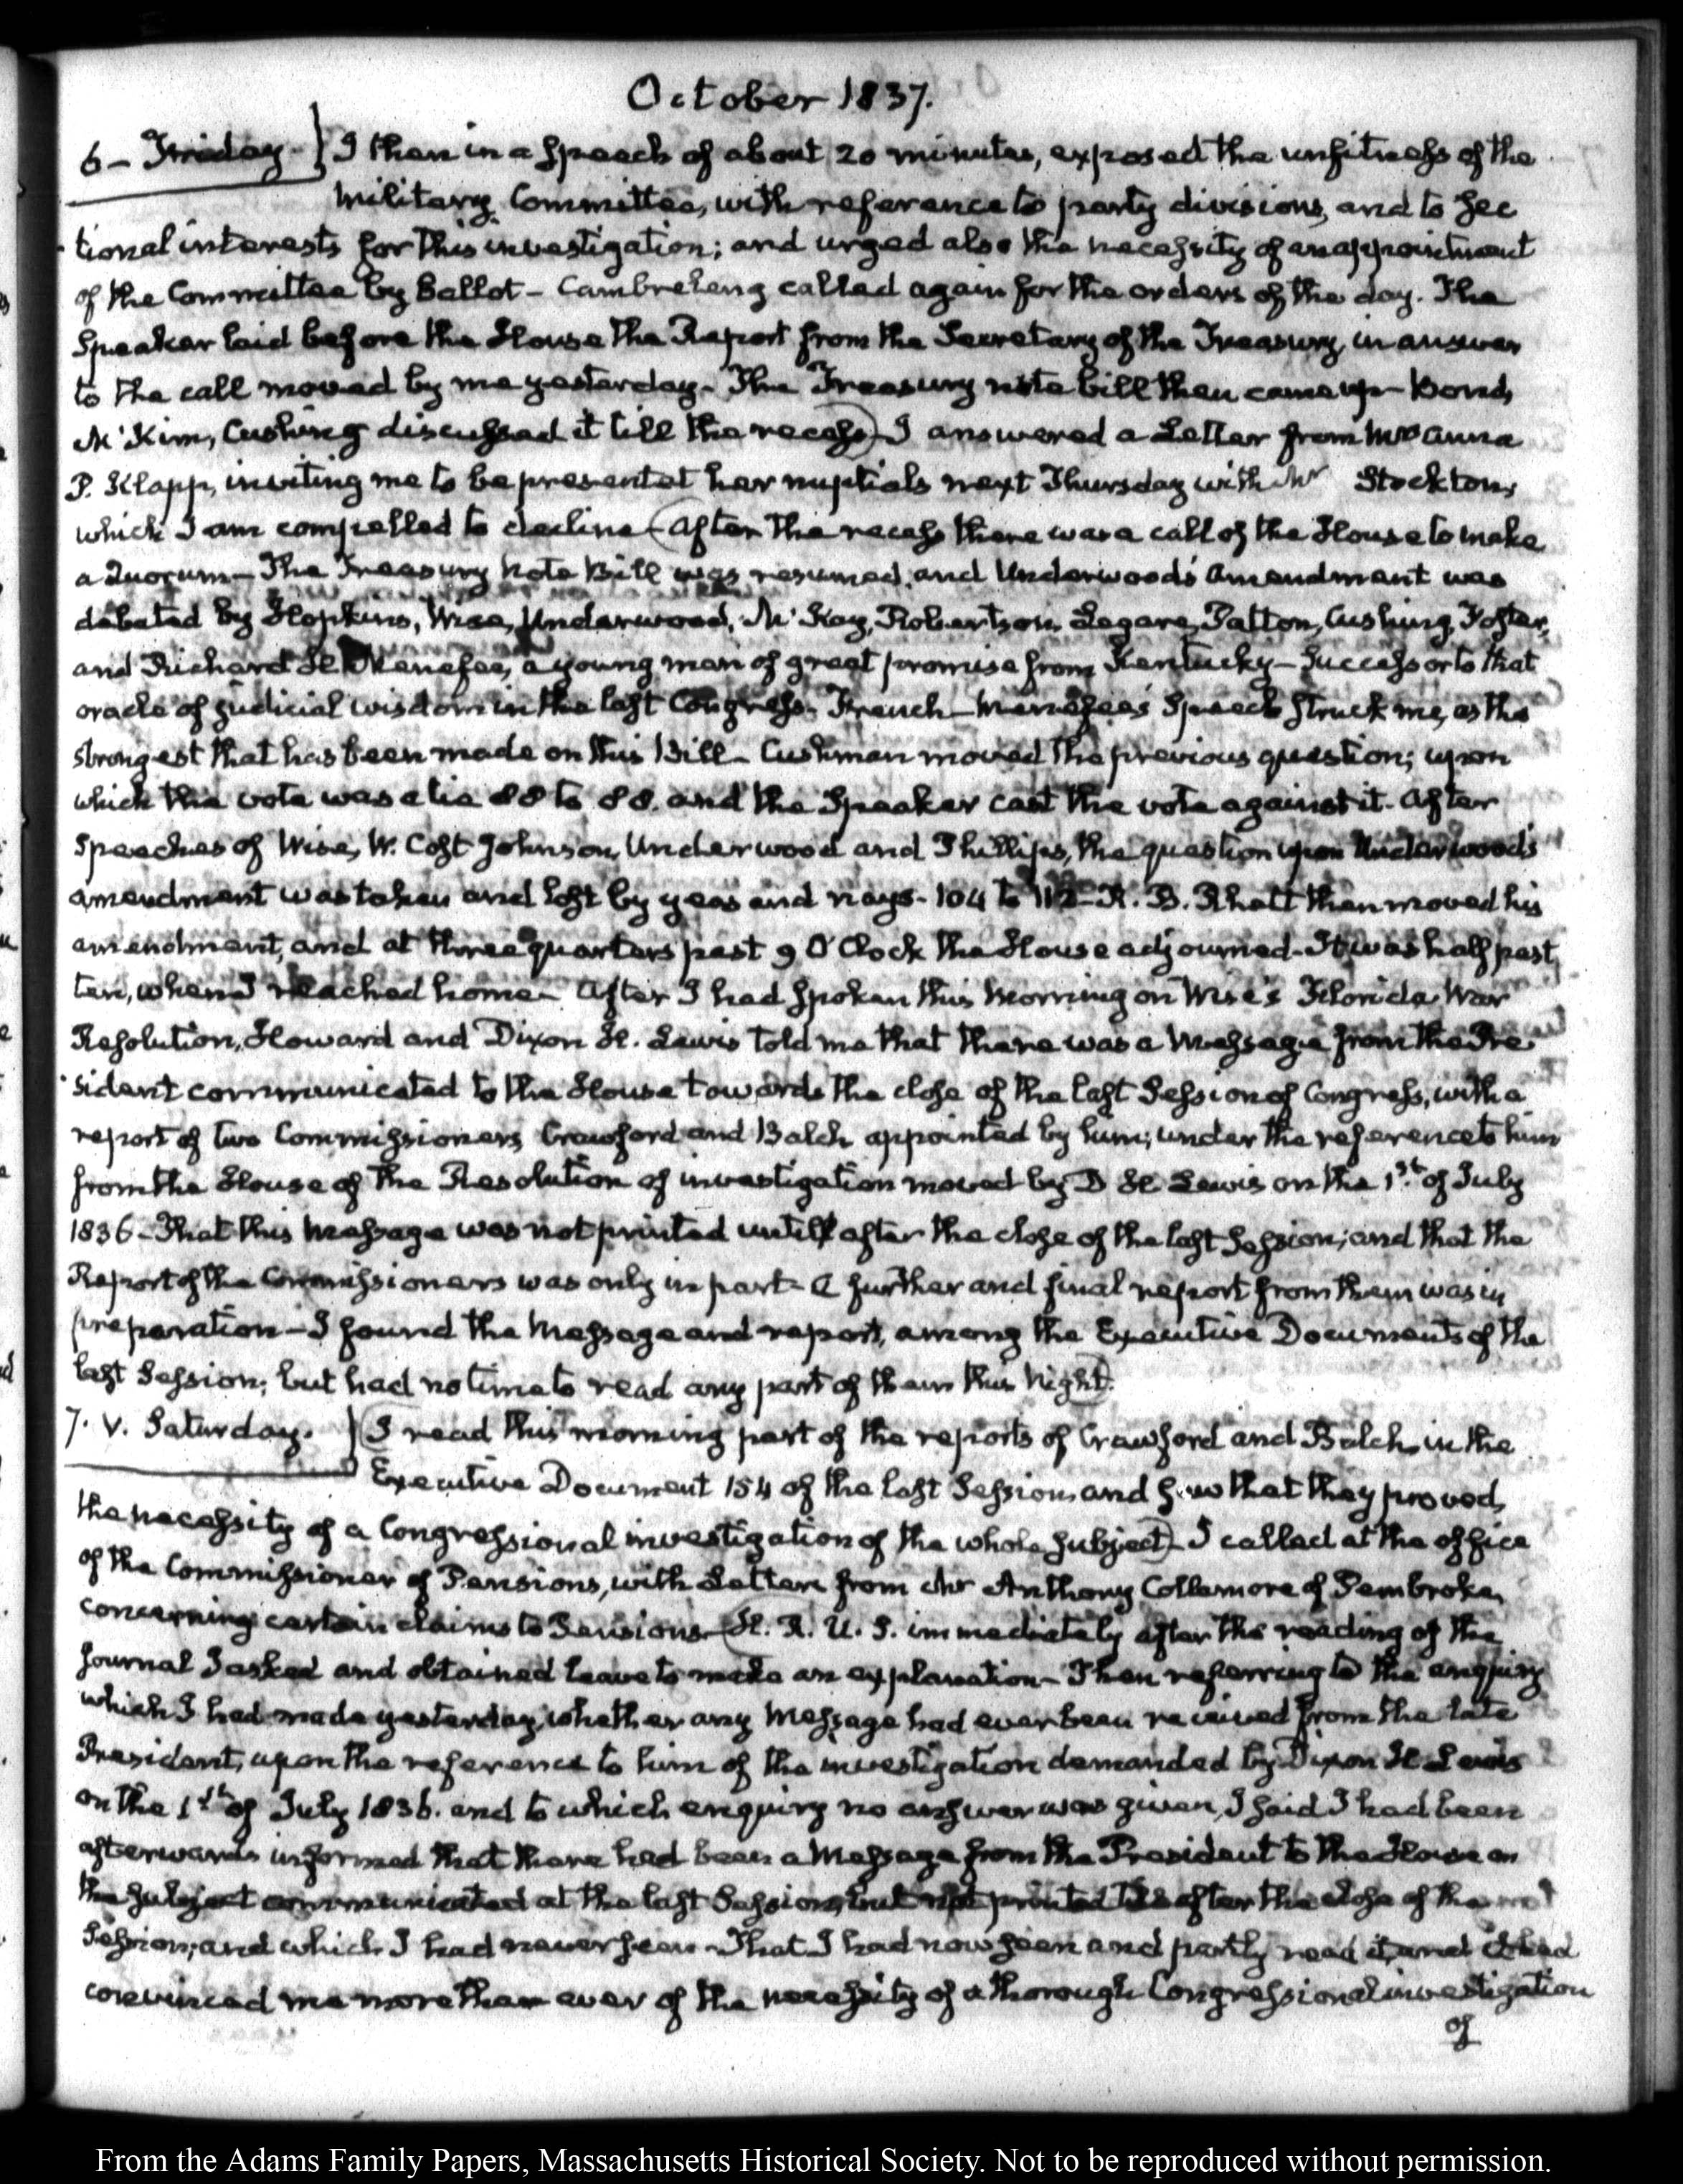 October 1837.
6 — Friday. I then in a Speech of about 20 minutes, exposed the unfitness of the
Military Committee, with reference to party divisions, and to sec
tional interests for this investigation; and urged also the necessity of an appointment
of the Committee by Ballot — Cambreleng called again for the orders of the day. The
Speaker laid before the House the Report from the Secretary of the Treasury, in answer
to the call moved by me yesterday — The Treasury note bill then came up — Bond,
McKim, Cushing discussed it till the recess) I answered a Letter from Mrs Anna
P. Klapp, inviting me to be present at her nuptials next Thursday with Mr Stockton,
which I am compelled to decline (After the recess there was a call of the House to make
a Quorum — The Treasury Note Bill was resumed, and Underwood's Amendment was
debated by Hopkins, Wise, Underwood, McKay, Robertson, Legare, Patton, Cushing, Foster,
and Richard H. Menefee, a young man of great promise from Kentucky — Successor to that
oracle of judicial wisdom in the last Congress, French — Menefee's Speech struck me, as the
strongest that has been made on this Bill — Cushman moved the previous question; upon
which the vote was a tie 88 to 88. and the Speaker cast the vote against it. After
Speeches of Wise, W. Cost Johnson, Underwood and Phillips, the question upon Underwood's
amendment was taken and lost by yeas and nays — 104 to 112 — R. B. Rhett then moved his
amendment, and at three quarters past 9 O'Clock the House adjourned — It was half past
ten, when I reached home — After I had spoken this Morning on Wise's Florida War
Resolution, Howard and Dixon H. Lewis told me that there was a Message from the Pre
sident communicated to the House towards the close of the last Session of Congress, with a
report of two Commissioners Crawford and Balch appointed by him, under the reference to him
from the House of the Resolution of investigation moved by D H Lewis on the 1st of July
1836 — That this Message was not printed until after the close of the last Session; and that the
Report of the Commissioners was only in part — A further and final report from them was in
preparation — I found the Message and report, among the Executive Documents of the
last Session; but had no time to read any part of them this Night).
7. V. Saturday. (I read this morning part of the reports of Crawford and Balch, in the
Executive Document 154 of the last Session, and saw that they proved,
the necessity of a Congressional investigation of the whole subject) — I called at the office
of the Commissioner of Pensions, with Letters from Mr Anthony Collamore of Pembroke,
concerning certain claims to Pensions — (H. R. U. S. immediately after the reading of the
Journal I asked and obtained leave to make an explanation — Then referring to the enquiry
which I had made yesterday, whether any Message had ever been received from the late
President, upon the reference to him of the investigation demanded by Dixon H Lewis
on the 1st of July 1836. and to which enquiry no answer was given, I said I had been
afterwards informed that there had been a Message from the President to the House on
the subject communicated at the last Session, but not printed till after the close of the
Session; and which I had never seen — That I had now seen and partly read it, and it had
convinced me more than ever of the necessity of a thorough Congressional investigation
of
From the Adams Family Papers, Massachusetts Historical Society. Not to be reproduced without permission.